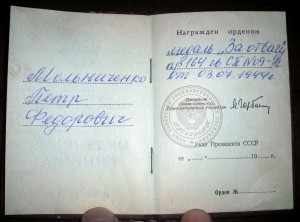 Мельниченко
Петр
Федорович
Награжден орденом
медаль "За отвагу"
от 03.07.1944г.
Указ Президента СССР
от „ “ 19 г.
Орден №